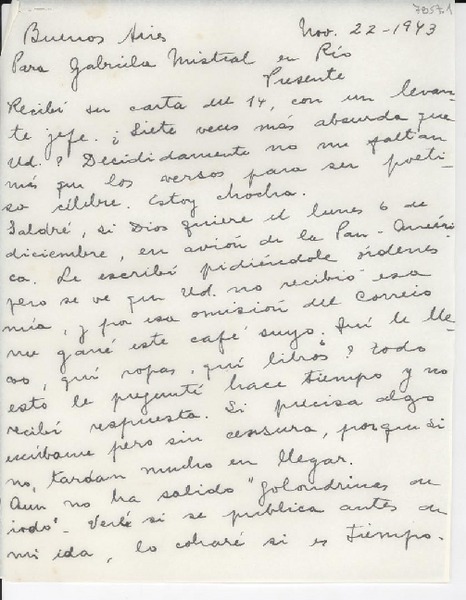 78571
Buenos Aires Nov. 22-1943
Para Gabriela Mistral en Río
Presente
Recibí su carta del 14, con un levan-
te jefe. ¿Siete veces más absurda que
Ud.? Decididamente no me faltan
más que los versos para ser poeti-
sa célebre. Estoy chocha.
Saldré, si Dios quiere el lunes 6 de
diciembre, en avión de la Pan-Améri-
ca. Le escribí pidiéndole órdenes
pero se ve que Ud. no recibió esa
mía, y por esa omisión del Correio
me gané este café suyo. Qué le lle-
vo, qué ropas, qué libros? Todo
esto le pregunté hace tiempo y no
recibí respuesta. Si precisa algo
escríbame pero sin censura, porque si
no, tardan mucho en llegar.
Aun no ha salido "Golondrinas de
iodo". Veré si se publica antes de
mi ida, lo cobraré si es tiempo.